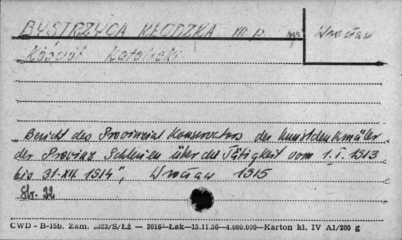 BYSTRZYCA KŁODZKA m. p. Wrocław
Kościół Katolicki
„Bericht des Provinzial Konservators der Kunstdenkmäler
der Provinz Schlesien über die Tätigkeit vom 1.I.1913
bis 31.XII.1914", Wrocław 1915
Str. 22
CWD - B-15b. Zam. 5323/S/Łż — 3016 Łak — 15.11.56 — 4.000.000 — Karton kl. IV A1/200 g